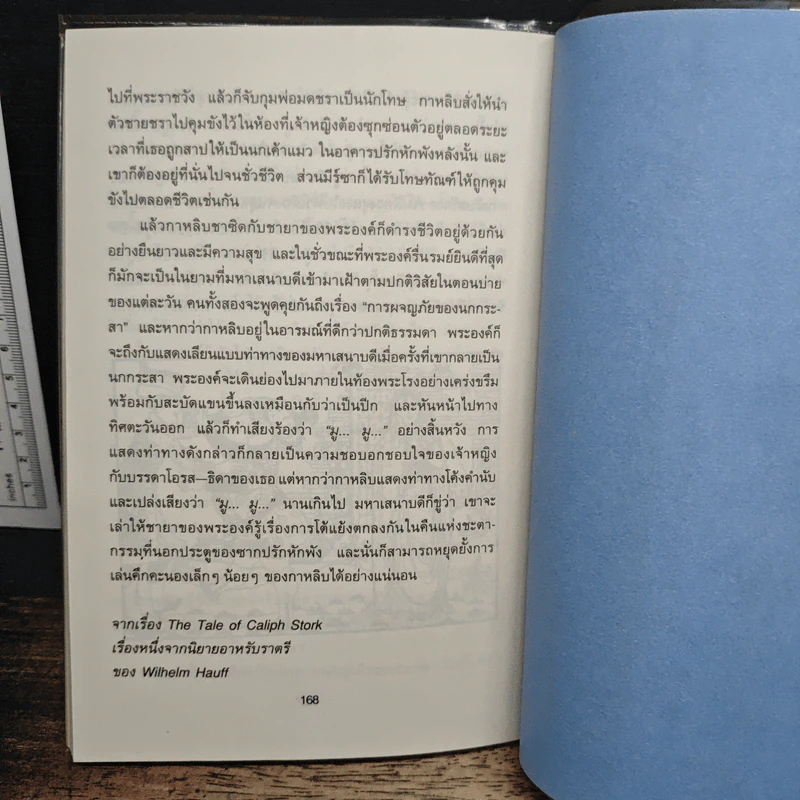 ไปที่พระราชวัง แล้วก็จับกุมพ่อมดชราเป็นนักโทษ กาหลิบสั่งให้นำ
ตัวชายชราไปคุมขังไว้ในห้องที่เจ้าหญิงต้องซุกซ่อนตัวอยู่ตลอดระยะ
เวลาที่เธอถูกสาปให้เป็นนกเค้าแมว ในอาคารปรักหักพังหลังนั้น และ
เขาก็ต้องอยู่ที่นั่นไปจนชั่วชีวิต ส่วนมีร์ซาก็ได้รับโทษทัณฑ์ให้ถูกคุม
ขังไปตลอดชีวิตเช่นกัน
แล้วกาหลิบชาซิดกับชายาของพระองค์ก็ดำรงชีวิตอยู่ด้วยกัน
อย่างยืนยาวและมีความสุข และในชั่วขณะที่พระองค์รื่นรมย์ยินดีที่สุด
ก็มักจะเป็นในยามที่มหาเสนาบดีเข้ามาเฝ้าตามปกติวิสัยในตอนบ่าย
ของแต่ละวัน คนทั้งสองจะพูดคุยกันถึงเรื่อง “การผจญภัยของนกกระ-
สา” และหากว่ากาหลิบอยู่ในอารมณ์ที่ดีกว่าปกติธรรมดา พระองค์ก็
จะถึงกับแสดงเลียนแบบท่าทางของมหาเสนาบดีเมื่อครั้งที่เขากลายเป็น
นกกระสา พระองค์จะเดินย่องไปมาภายในท้องพระโรงอย่างเคร่งขรึม
พร้อมกับสะบัดแขนขึ้นลงเหมือนกับว่าเป็นปีก และหันหน้าไปทาง
ทิศตะวันออก แล้วก็ทำเสียงร้องว่า “มู... มู...” อย่างสิ้นหวัง การ
แสดงท่าทางดังกล่าวก็กลายเป็นความชอบอกชอบใจของเจ้าหญิง
กับบรรดาโอรส—ธิดาของเธอ แต่หากว่ากาหลิบแสดงท่าทางโค้งคำนับ
และเปล่งเสียงว่า “มู... มู...” นานเกินไป มหาเสนาบดีก็ขู่ว่า เขาจะ
เล่าให้ชายาของพระองค์รู้เรื่องการโต้แย้งตกลงกันในคืนแห่งชะตา-
กรรมที่นอกประตูของซากปรักหักพัง และนั่นก็สามารถหยุดยั้งการ
เล่นคึกคะนองเล็กๆ น้อยๆ ของกาหลิบได้อย่างแน่นอน
จากเรื่อง The Tale of Caliph Stork
เรื่องหนึ่งจากนิยายอาหรับราตรี
ของ Wilhelm Hauff
168
inches
1
2
3
4
5
6